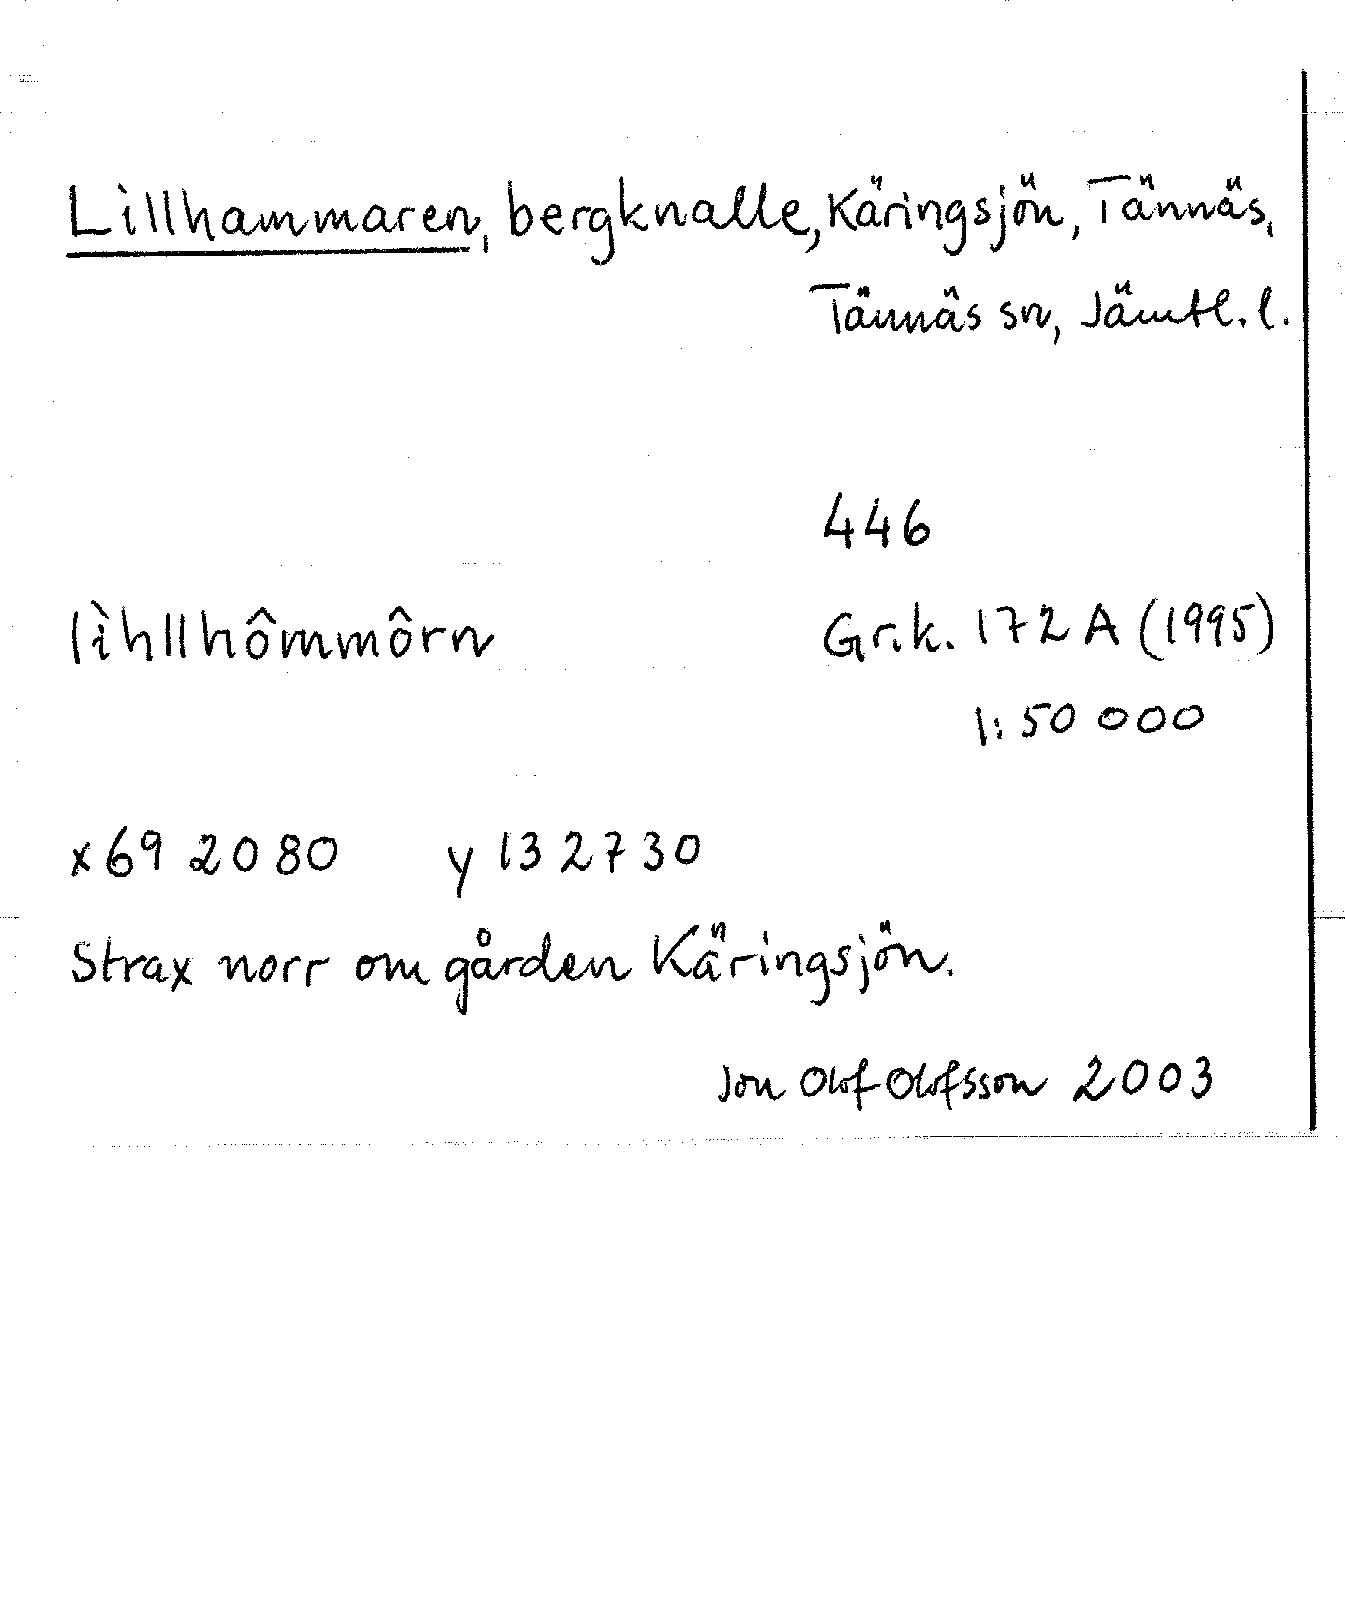 Lillhammaren, bergknalle, Käringsjön, Tännäs,
Tännäs sn, Jämtl. l.
446
lìhllhômmôrn Gr.k. 172 A (1995)
1:50 000
x 69 20 80 y 13 27 30
Strax norr om gården Käringsjön.
Jon Olof Olofsson 2003